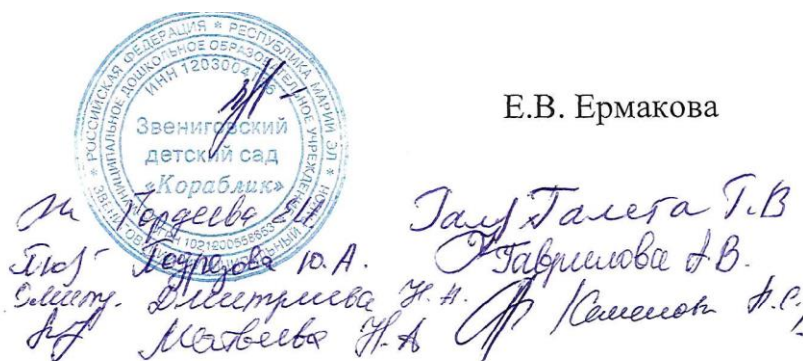 РОССИЙСКАЯ ФЕДЕРАЦИЯ * РЕСПУБЛИКА МАРИЙ ЭЛ *
МУНИЦИПАЛЬНОЕ ДОШКОЛЬНОЕ ОБРАЗОВАТЕЛЬНОЕ УЧРЕЖДЕНИЕ
ИНН 1203004
Звениговский
детский сад
«Кораблик»
Е.В. Ермакова
Гордеева
Галета Т.В
Ю.А.
Гаврилова А.В.
Дмитриева Н.Н.
Матвеева Н.А